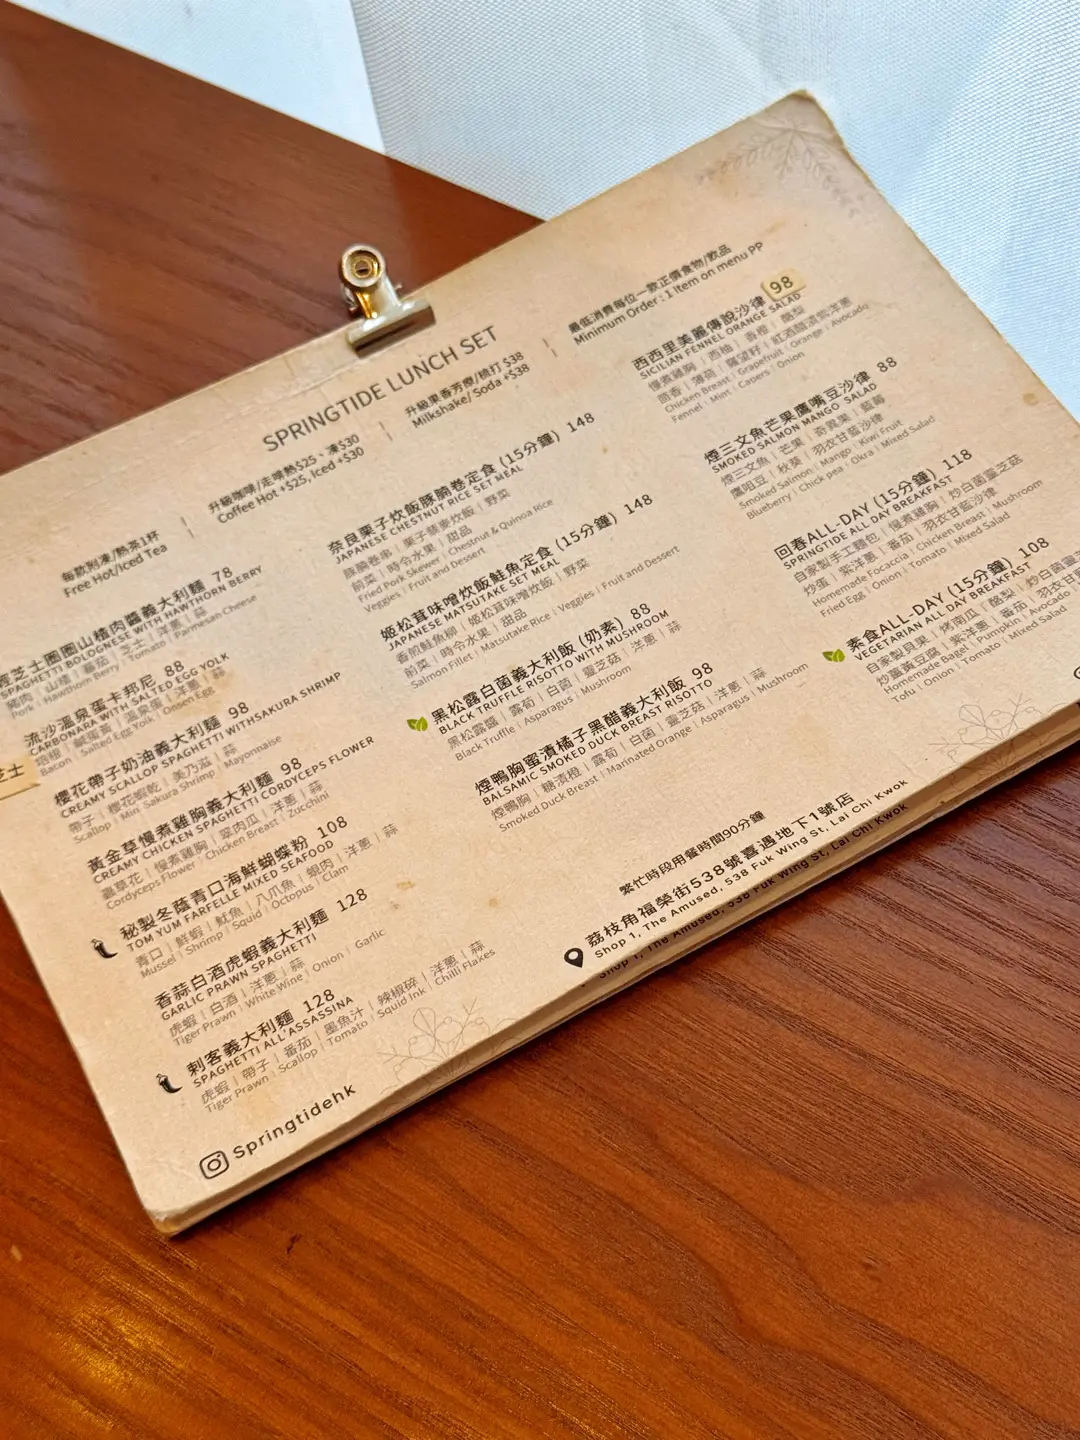 SPRINGTIDE LUNCH SET
每款附凍/熱茶1杯
Free Hot/Iced Tea
升級咖啡/走啡熱$25、凍$30
Coffee Hot +$25, Iced +$30
升級果香芳療/梳打 $38
Milkshake/ Soda +$38
最低消費每位一款正價食物/飲品
Minimum Order : 1 item on menu PP
芝士圈圈山楂肉醬義大利麵 78
SPAGHETTI BOLOGNESE WITH HAWTHORN BERRY
豬肉 | 山楂 | 番茄 | 芝士 | 洋蔥 | 蒜
Pork | Hawthorn Berry | Tomato | Parmesan Cheese
流沙溫泉蛋卡邦尼 88
CARBONARA WITH SALTED EGG YOLK
培根 | 鹹蛋黃 | 溫泉蛋 | 洋蔥 | 蒜
Bacon | Salted Egg Yolk | Onsen Egg
芝士
櫻花帶子奶油義大利麵 98
CREAMY SCALLOP SPAGHETTI WITHSAKURA SHRIMP
帶子 | 櫻花蝦乾 | 美乃滋 | 蒜
Scallop | Mini Sakura Shrimp | Mayonnaise
黃金草慢煮雞胸義大利麵 98
CREAMY CHICKEN SPAGHETTI CORDYCEPS FLOWER
蟲草花 | 慢煮雞胸 | 翠肉瓜 | 洋蔥 | 蒜
Cordyceps Flower | Chicken Breast | Zucchini
秘製冬蔭青口海鮮蝴蝶粉 108
TOM YUM FARFELLE MIXED SEAFOOD
青口 | 鮮蝦 | 魷魚 | 八爪魚 | 蜆肉 | 洋蔥 | 蒜
Mussel | Shrimp | Squid | Octopus | Clam
香蒜白酒虎蝦義大利麵 128
GARLIC PRAWN SPAGHETTI
虎蝦 | 白酒 | 洋蔥 | 蒜
Tiger Prawn | White Wine | Onion | Garlic
刺客義大利麵 128
SPAGHETTI ALL'ASSASSINA
虎蝦 | 帶子 | 番茄 | 墨魚汁 | 辣椒碎 | 洋蔥 | 蒜
Tiger Prawn | Scallop | Tomato | Squid Ink | Chilli Flakes
Springtidehk
奈良栗子炊飯豚腩卷定食 (15分鐘) 148
JAPANESE CHESTNUT RICE SET MEAL
豚腩卷串 | 栗子藜麥炊飯 | 野菜
前菜 | 時令水果 | 甜品
Fried Pork Skewer | Chestnut & Quinoa Rice
Veggies | Fruit and Dessert
姬松茸味噌炊飯鮭魚定食 (15分鐘) 148
JAPANESE MATSUTAKE SET MEAL
香煎鮭魚柳 | 姬松茸味噌炊飯 | 野菜
前菜 | 時令水果 | 甜品
Salmon Fillet | Matsutake Rice | Veggies | Fruit and Dessert
黑松露白菌義大利飯 (奶素) 88
BLACK TRUFFLE RISOTTO WITH MUSHROOM
黑松露醬 | 露荀 | 白菌 | 靈芝菇 | 洋蔥 | 蒜
Black Truffle | Asparagus | Mushroom
煙鴨胸蜜漬橘子黑醋義大利飯 98
BALSAMIC SMOKED DUCK BREAST RISOTTO
煙鴨胸 | 糖漬橙 | 露荀 | 白菌 | 靈芝菇 | 洋蔥 | 蒜
Smoked Duck Breast | Marinated Orange | Asparagus | Mushroom
西西里美麗傳說沙律 98
SICILIAN FENNEL ORANGE SALAD
慢煮雞胸 | 西柚 | 香橙 | 酪梨
茴香 | 薄荷 | 羅望籽 | 紅酒醋漬紫洋蔥
Chicken Breast | Grapefruit | Orange | Avocado
Fennel | Mint | Capers | Onion
煙三文魚芒果鷹嘴豆沙律 88
SMOKED SALMON MANGO SALAD
煙三文魚 | 芒果 | 奇異果 | 藍莓
鷹咀豆 | 秋葵 | 羽衣甘藍沙律
Smoked Salmon | Mango | Kiwi Fruit
Blueberry | Chick pea | Okra | Mixed Salad
回春ALL-DAY (15分鐘) 118
SPRINGTIDE ALL DAY BREAKFAST
自家製手工麵包 | 慢煮雞胸 | 炒白菌靈芝菇
炒蛋 | 紫洋蔥 | 番茄 | 羽衣甘藍沙律
Homemade Focaccia | Chicken Breast | Mushroom
Fried Egg | Onion | Tomato | Mixed Salad
素食ALL-DAY (15分鐘) 108
VEGETARIAN ALL DAY BREAKFAST
自家製貝果 | 烤南瓜 | 酪梨 | 炒白菌靈
炒蛋黃豆腐 | 紫洋蔥 | 番茄 | 羽衣甘
Homemade Bagel | Pumpkin | Avocado
Tofu | Onion | Tomato | Mixed Salad
繁忙時段用餐時間90分鐘
荔枝角福榮街538號喜遇地下1號店
Shop 1, The Amused, 538 Fuk Wing St, Lai Chi Kwok
Shop 1, The Amused, 538 Fuk Wing St, Lai Chi Kwok